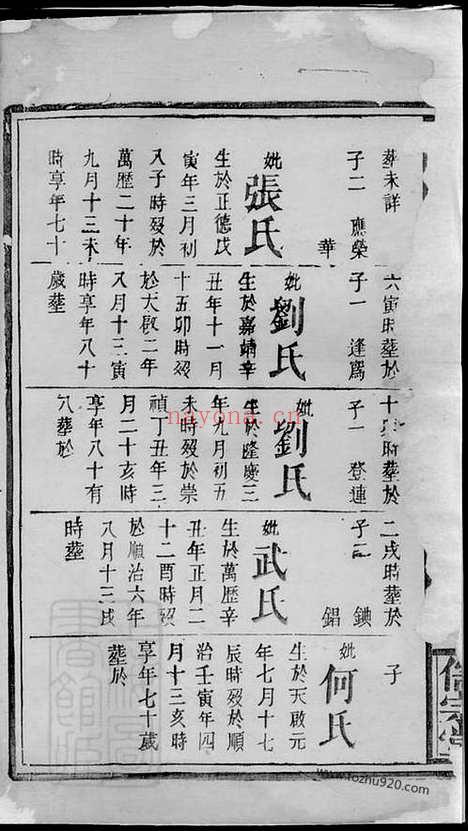 葬未詳
子二 應榮
華
妣
張氏
生於正德戊
寅年三月初
八子時歿於
萬歷二十年
九月十三未
時享年七十
六寅時葬於
子一 逢爲
妣
劉氏
生於嘉靖辛
丑年十一月
十五卯時歿
於大啟二年
八月十三寅
時享年八十
歲葬
時葬於
子一 登連
妣
劉氏
生於隆慶三
年九月初五
未時歿於崇
禎丁丑年三
月二十亥時
享年八十有
八葬於
二戌時葬於
子二 鐭
錩
妣
武氏
生於萬歷辛
丑年正月二
十二酉時歿
於順治六年
八月十三戌
時葬
子
妣
何氏
生於天啟元
年七月十七
辰時歿於順
治壬寅年四
月十三亥時
享年七十歲
葬於
nayona.cn
www.fozhu920.com